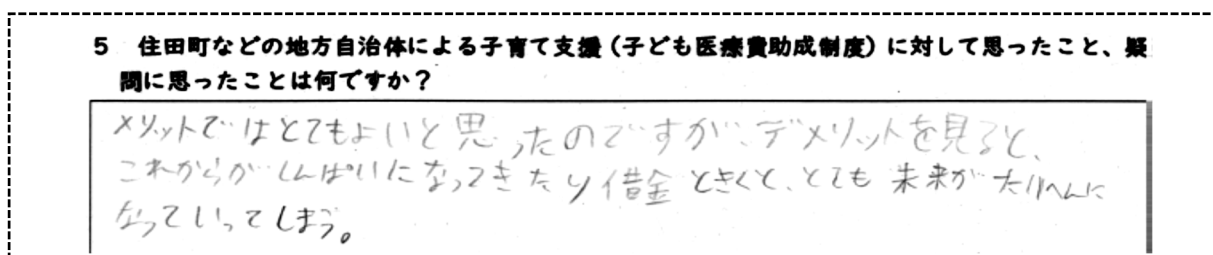 5　住田町などの地方自治体による子育て支援（子ども医療費助成制度）に対して思ったこと、疑
問に思ったことは何ですか？
メリットではとてもよいと思ったのですが、デメリットを見ると、
これからがしんぱいになってきたり借金ときくと、とても未来がたいへんに
なっていってしまう。